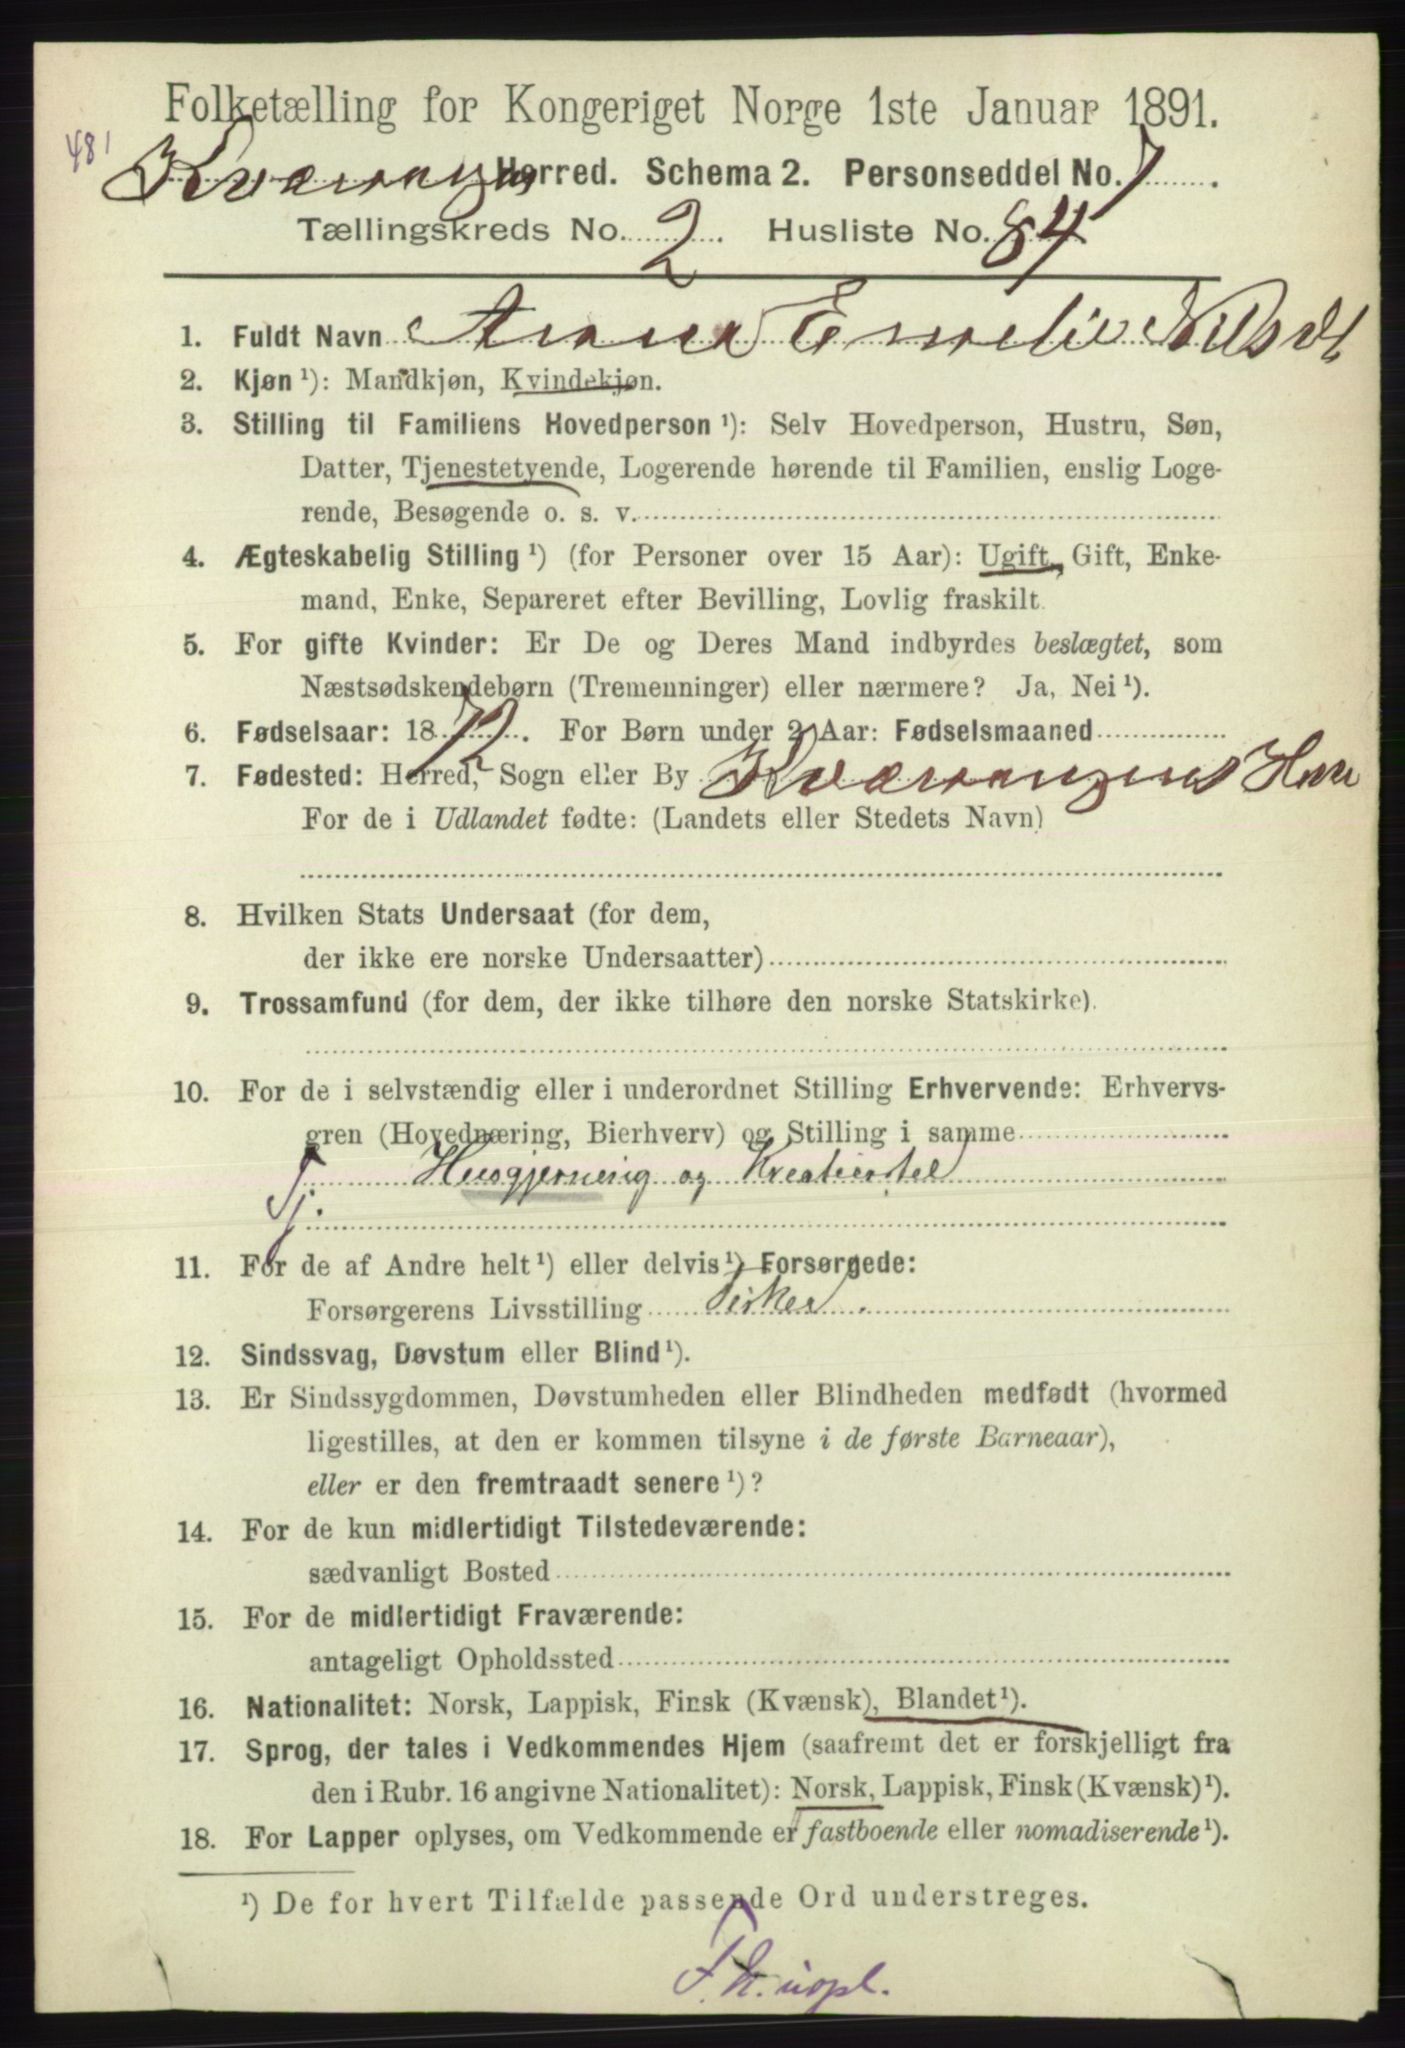 Folketælling for Kongeriget Norge 1ste Januar 1891.
481
Kvænangen Herred. Schema 2. Personseddel No. 7.
Tællingskreds No. 2. Husliste No. 84
1. Fuldt Navn Anna Emelie
2. Kjøn ¹): Mandkjøn, Kvindekjøn.
3. Stilling til Familiens Hovedperson ¹): Selv Hovedperson, Hustru, Søn,
Datter, Tjenestetyende, Logerende hørende til Familien, enslig Loge-
rende, Besøgende o. s. v.
4. Ægteskabelig Stilling ¹) (for Personer over 15 Aar): Ugift, Gift, Enke-
mand, Enke, Separeret efter Bevilling, Lovlig fraskilt.
5. For gifte Kvinder: Er De og Deres Mand indbyrdes beslægtet, som
Næstsødskendebørn (Tremenninger) eller nærmere? Ja, Nei ¹).
6. Fødselsaar: 1872. For Børn under 2 Aar: Fødselsmaaned
7. Fødested: Herred, Sogn eller By Kvænangens Her
For de i Udlandet fødte: (Landets eller Stedets Navn)
8. Hvilken Stats Undersaat (for dem,
der ikke ere norske Undersaatter)
9. Trossamfund (for dem, der ikke tilhøre den norske Statskirke).
10. For de i selvstændig eller i underordnet Stilling Erhvervende: Erhvervs-
gren (Hovednæring, Bierhverv) og Stilling i samme
Tj. Husgjerning og Kreaturstel
11. For de af Andre helt ¹) eller delvis ¹) Forsørgede:
Forsørgerens Livsstilling Fisker.
12. Sindssvag, Døvstum eller Blind ¹).
13. Er Sindssygdommen, Døvstumheden eller Blindheden medfødt (hvormed
ligestilles, at den er kommen tilsyne i de første Barneaar),
eller er den fremtraadt senere ¹)?
14. For de kun midlertidigt Tilstedeværende:
sædvanligt Bosted
15. For de midlertidigt Fraværende:
antageligt Opholdssted
16. Nationalitet: Norsk, Lappisk, Finsk (Kvænsk), Blandet ¹).
17. Sprog, der tales i Vedkommendes Hjem (saafremt det er forskjelligt fra
den i Rubr. 16 angivne Nationalitet): Norsk, Lappisk, Finsk (Kvænsk) ¹).
18. For Lapper oplyses, om Vedkommende er fastboende eller nomadiserende ¹).
¹) De for hvert Tilfælde passende Ord understreges.